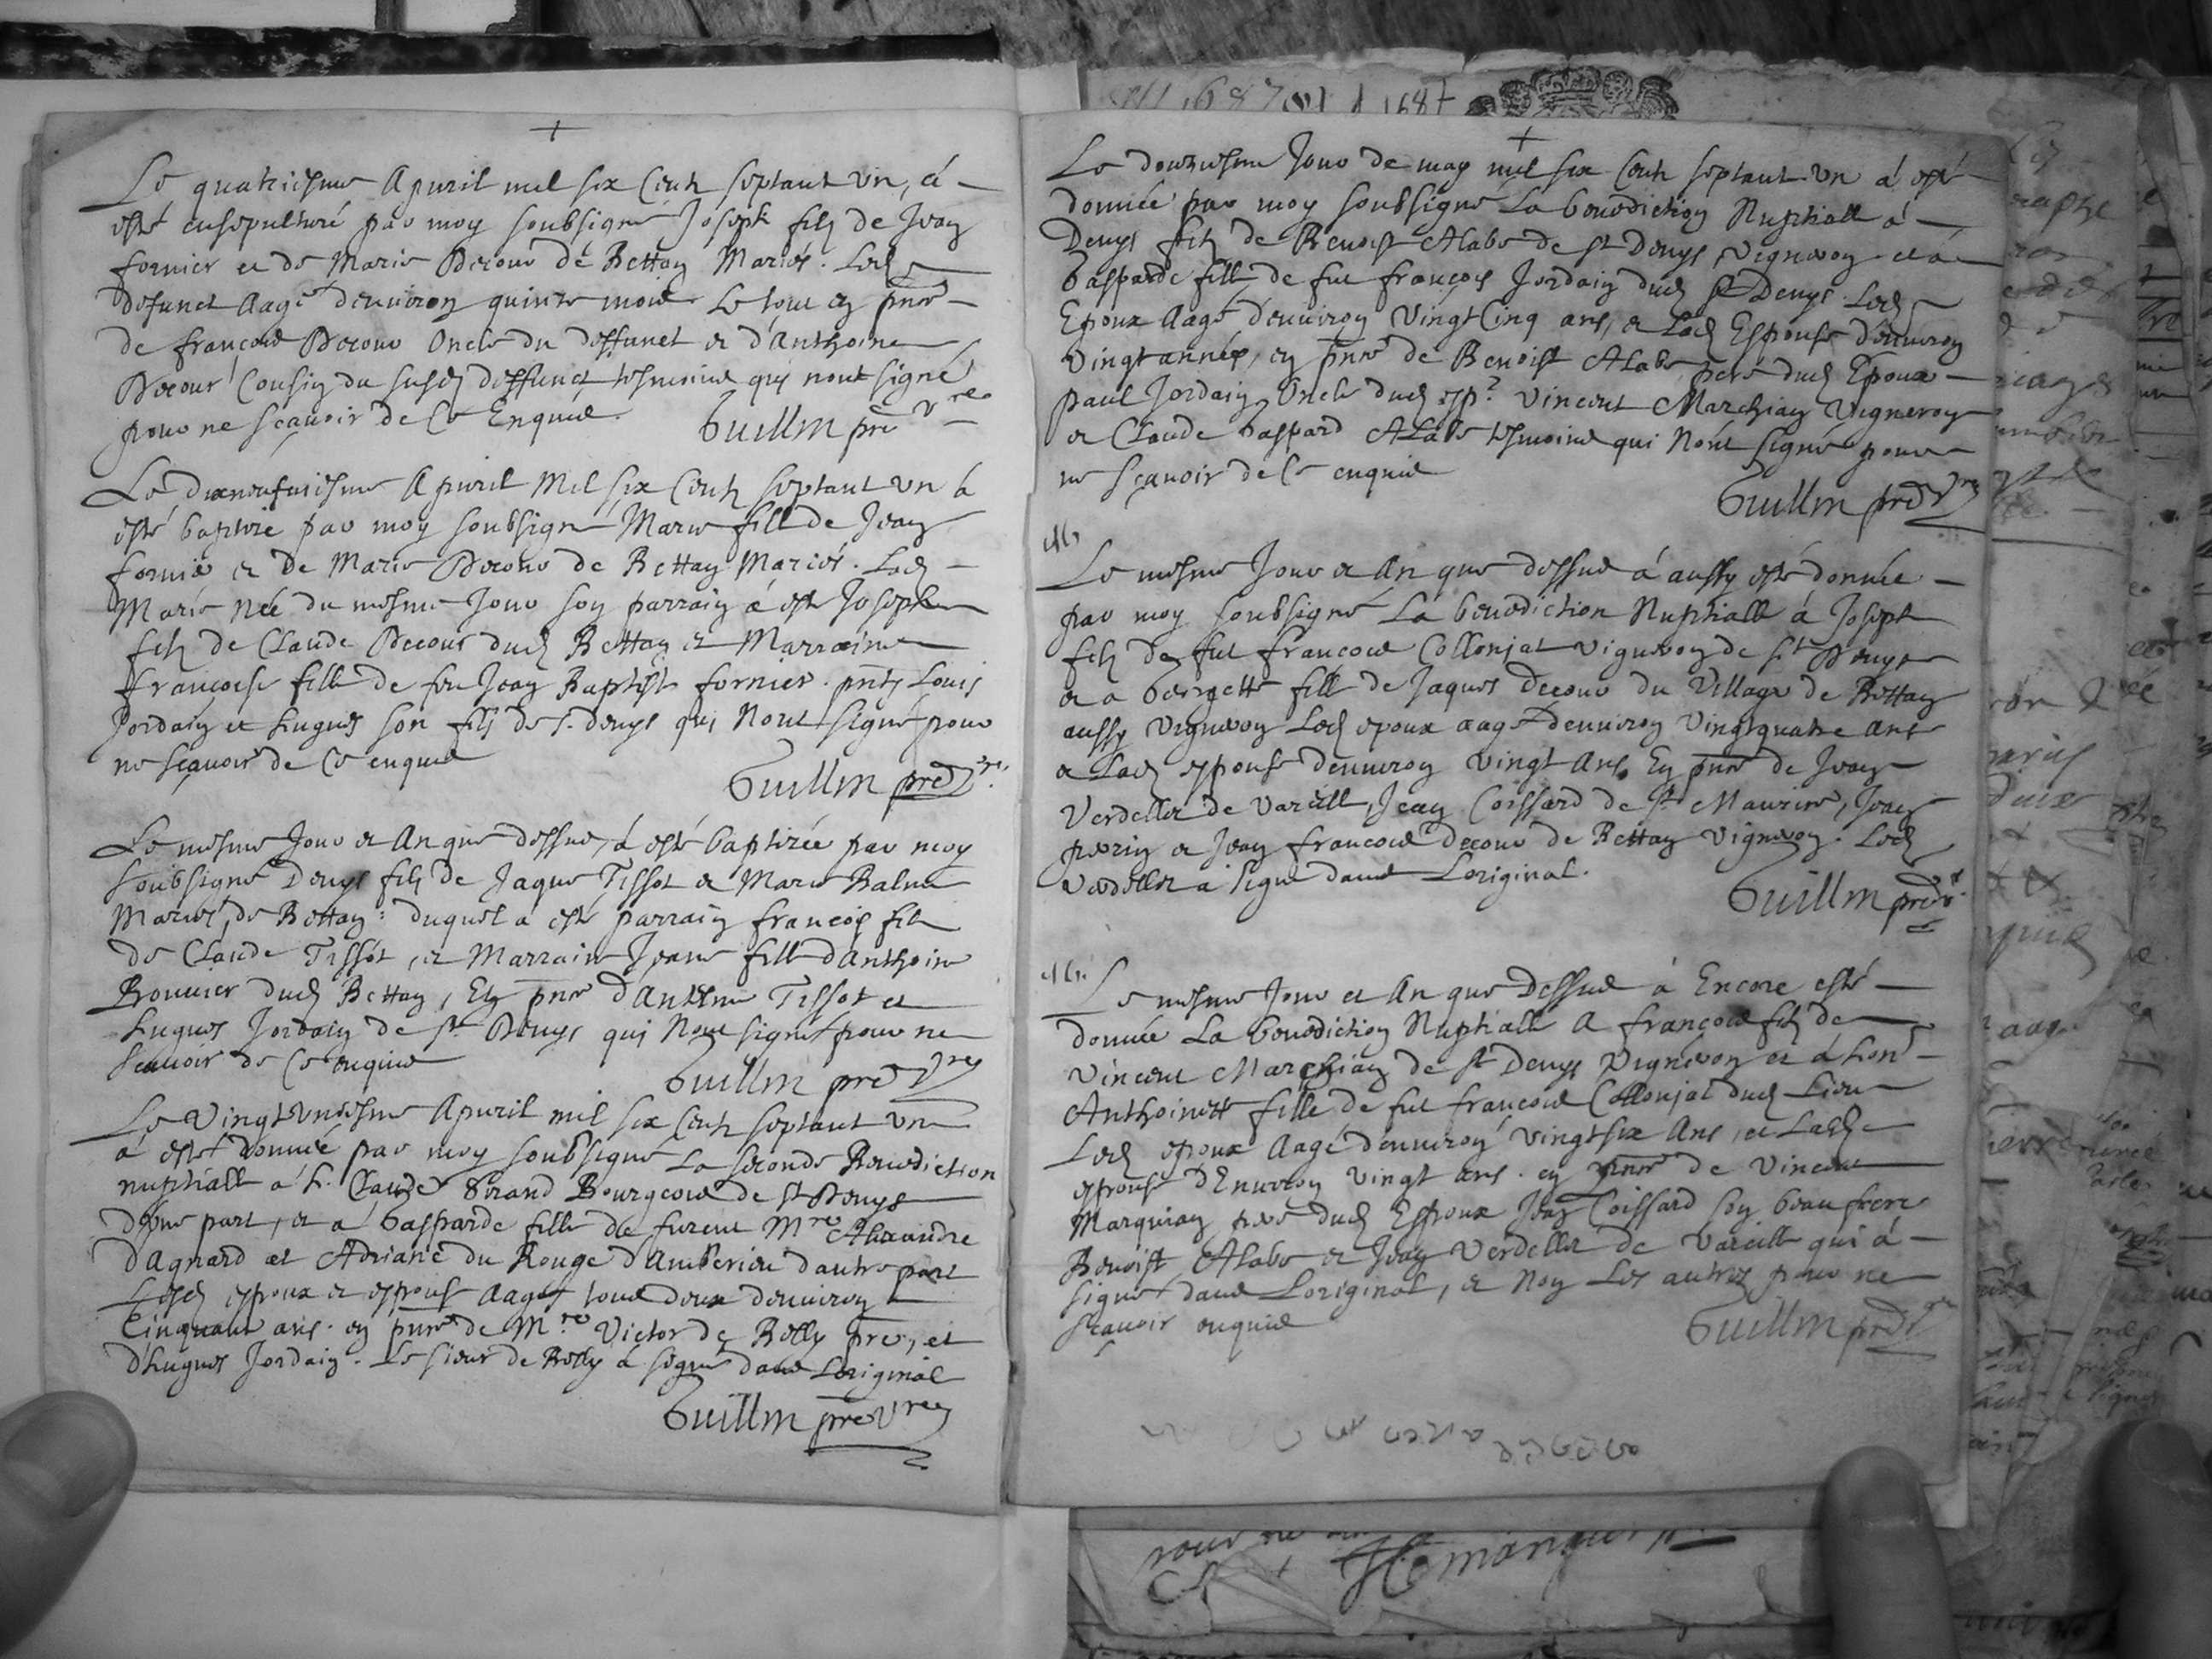 +
Le quatriesme Apuril mil six Cent septant Vn, á
esté ensepulturé par moy soubsigné Joseph filz de Jean
fornier et de Marie Decour de Bettan Mariés. Led
defunct Aagé denuiron quinze mois Le tout en pnce
de francois Decour Oncle du deffunct et d'Anthoine
Decour Cousin du susd deffunct tesmoins qui nont signé
pour ne scauoir de Ce Enquis. Guillm pre Vre
Le dixneufuiesme Apuril Mil six Cent septant Vn a
esté baptizé par moy soubsigné Marie fille de Jean
fornier et De Marie Decour de Bettan Mariés. Lad
Marie Née du mesme Jour son parrain á esté Joseph
filz de Claude Decour dud Bettan et Marraine
francoise fille de feu Jean Baptiste fornier. pntz Louis
Jordain et hugues son filz de S. denys qui Nont signé pour
ne scauoir de Ce enquis
Guillm pre Vre
Le mesme Jour et An que dessus, á esté baptizée par moy
soubsigné Denys filz de Jaque Tissot et Marie Balme
Mariés, de Bettan: duquel a esté parrain francois filz
de Claude Tissot, et Marraine Jeane fille d'Anthoine
Bouuier dud Bettan, En pnce d'Antelme Tissot et
hugues Jordain de St Denys qui Nont signé pour ne
scauoir de Ce enquis
Guillm pre Vre
Le Vingtvniesme Apuril mil six Cent septant Vn
a esté donnée par moy soubsigné La seconde Benediction
nuptialle á h. Claude Girand Bourgeois de St Denys
dvne part, et a Gasparde fille de furent Mre Alexandre
dAgnard et Adriane du Rouge d'Amberieu dautre part
Lesd espoux et espouse Aagés tous deux denuiron
Cinquante ans. en pnce de Mre Victor de Belly pre, et
d'hugues Jordain. Le sieur de Belly á signé dans Loriginal
Guillm pre Vre
+
Le douziesme Jour de may mil six Cent septant Vn á esté
donnée par moy soubsigné La benediction Nuptialle á
Denys filz de Benoist Alabe de St Denys Vigneron et á
Gasparde fille de fut francois Jordain dud St Denys. Led
Epoux Aagé d'enuiron Vingt Cinq ans, et Lad Espouse d'enuiron
Vingt années, en pnce de Benoist Alabe pere dud Epoux
paul Jordain Oncle dud esp. Vincent Marchian Vigneron
et Claude Gaspard Alabe tesmoins qui Nont signé pour
ne sçauoir de Ce enquis
Guillm pre Vre
Le mesme Jour et An que dessus á aussy esté donnée
par moy soubsigné La benediction Nuptialle á Joseph
filz de fut francois Collonjat vigneron de St Denys
et a Georgette fille de Jaques decour du Village de Bettan
aussy Vigneron Led epoux aagé denuiron Vingtquatre ans
et Lad espouse denuiron vingt Ans, En pnce de Jean
Verdellet de Vareille, Jean Coissard de St Maurice, Jean
perrin et Jean francois decour de Bettan Vigneron. Led
verdellet a signé dans Loriginal.
Guillm pre Vre
Le mesme Jour et An que Dessus á Encore esté
donnée La benediction Nuptialle A francois filz de
Vincent Marchian de St Denys Vigneron et á hon
Anthoinette fille de fut francois Collonjat dud Lieu
Led epoux Aagé denuiron vingtsix Ans, et Lad
espouse dEnuiron vingt ans. en pnce de Vincent
Marquian pere dud Espoux Jean Coissard son beau frere
Benoist Alabe et Jean Verdellet de Vareille qui á
signé dans Loriginal, et Non Les autres pour ne
scauoir enquis
Guillm pre Vre